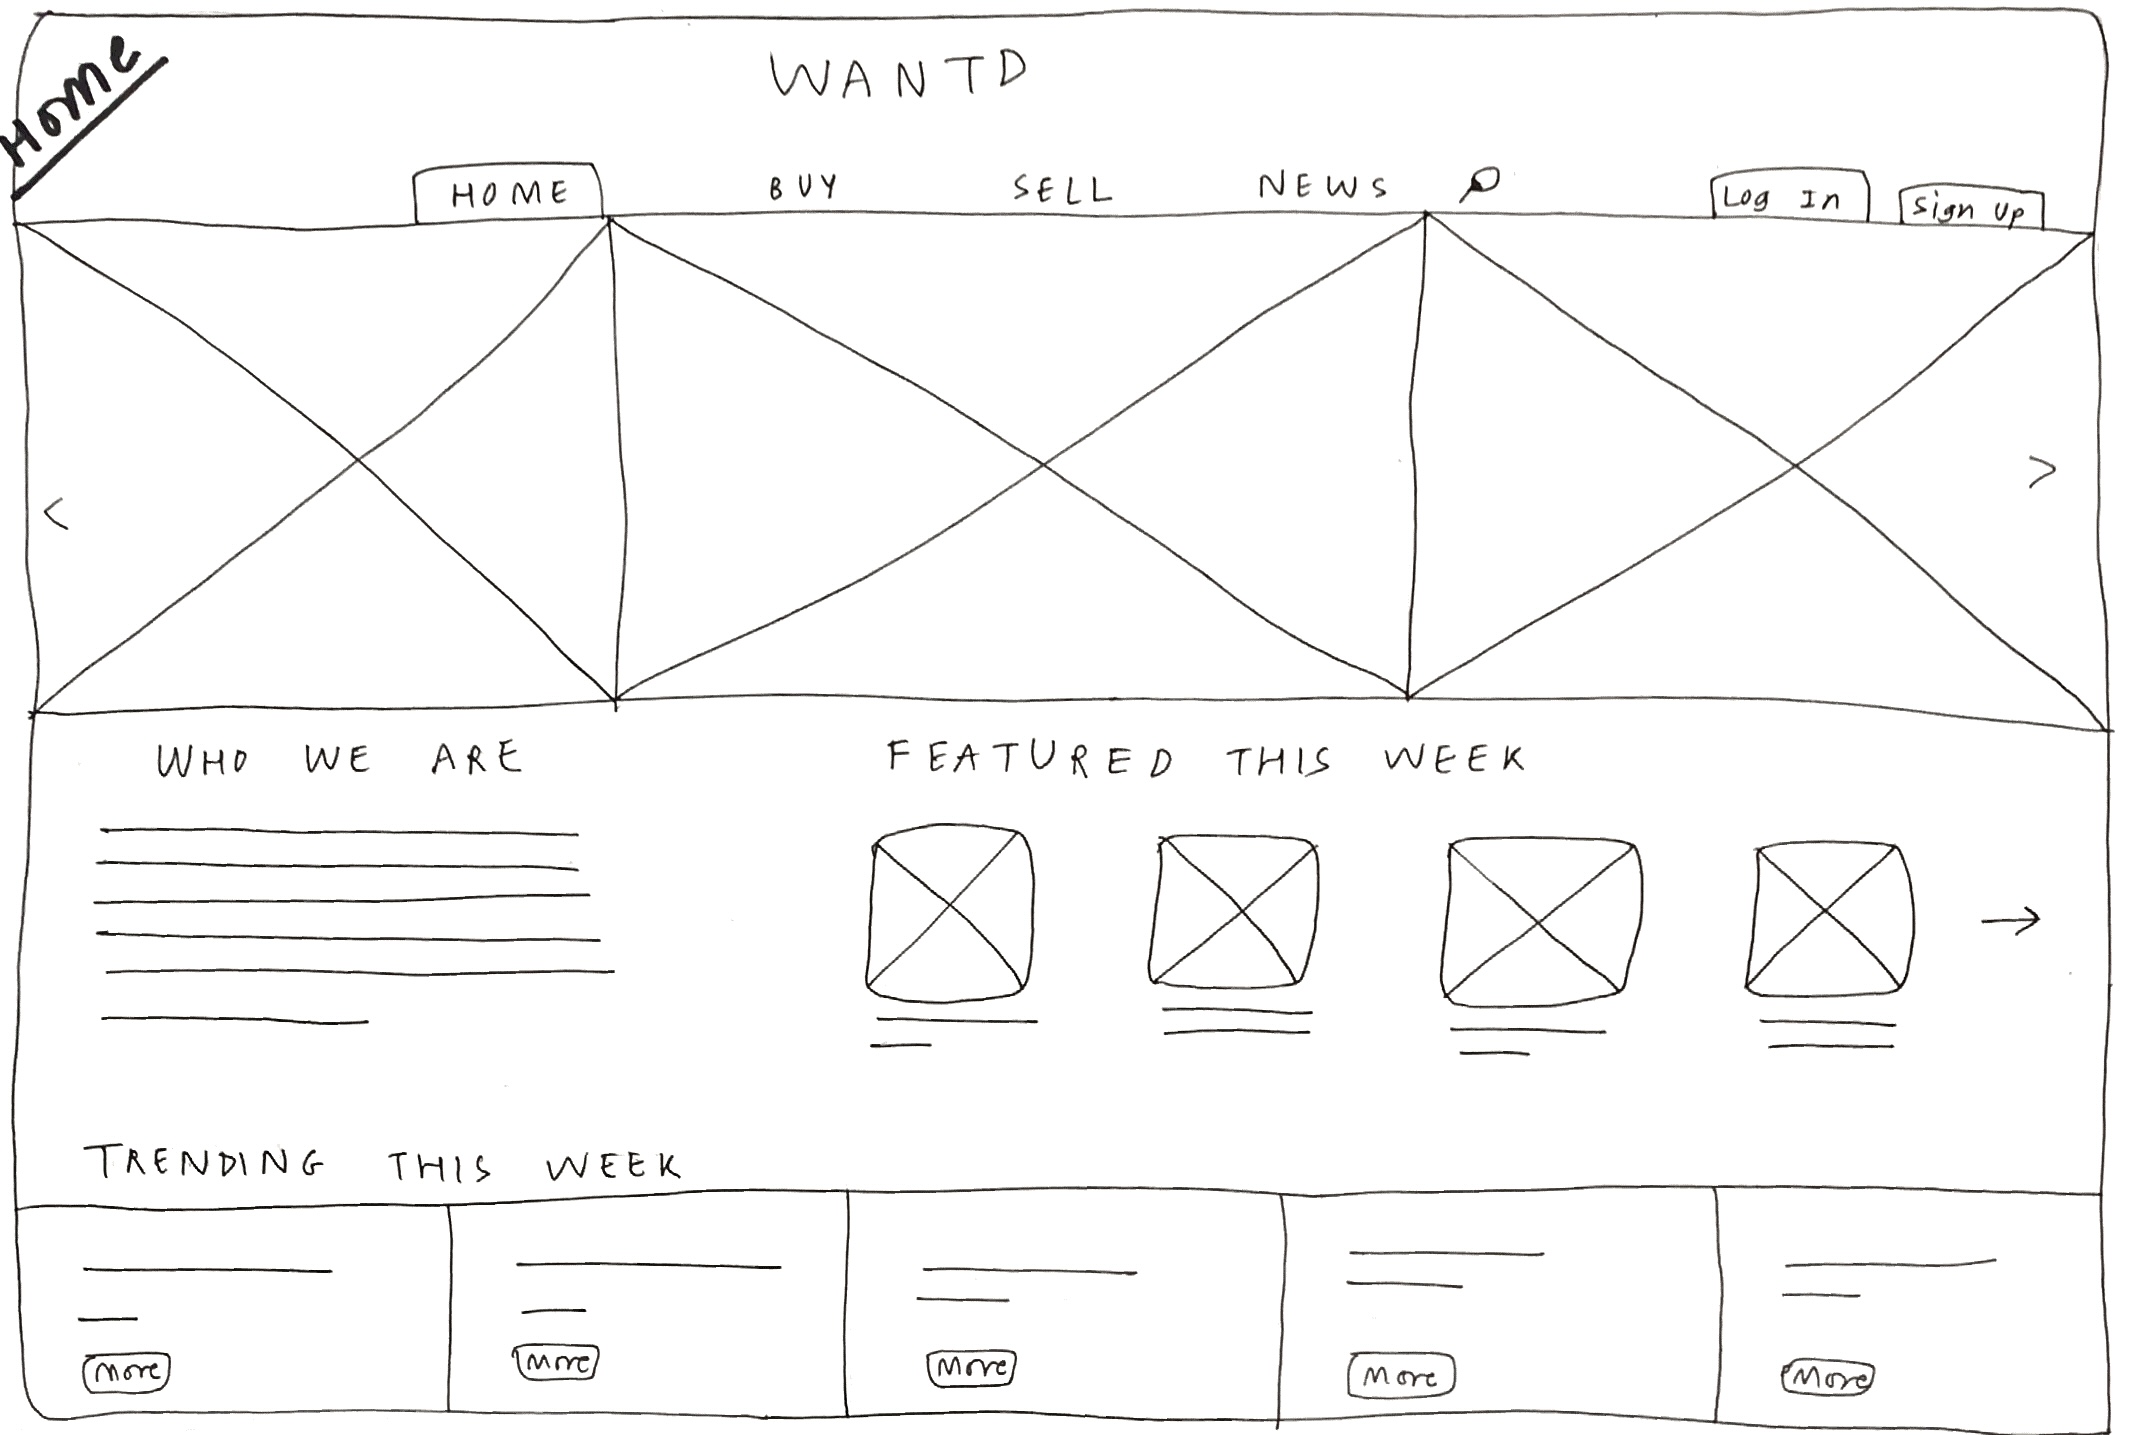 Home
WANTD
HOME BUY SELL NEWS Log In Sign Up
< >
WHO WE ARE
FEATURED THIS WEEK
TRENDING THIS WEEK
More More More More More